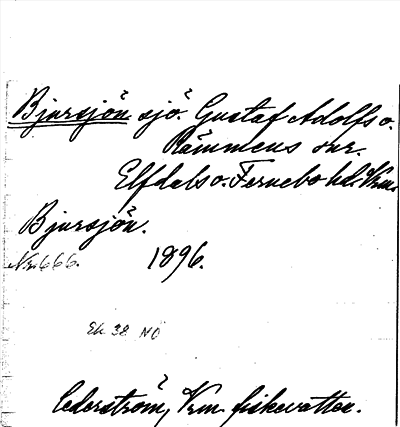 Bjursjön sjö. Gustaf Adolfs o.
Rämmens snr.
Elfdals o. Fernebo hd. Vrm.
Bjursjön.
Nr. 666. 1896.
Ek 38 NO
Cederström, Vrm. fiskevatten.